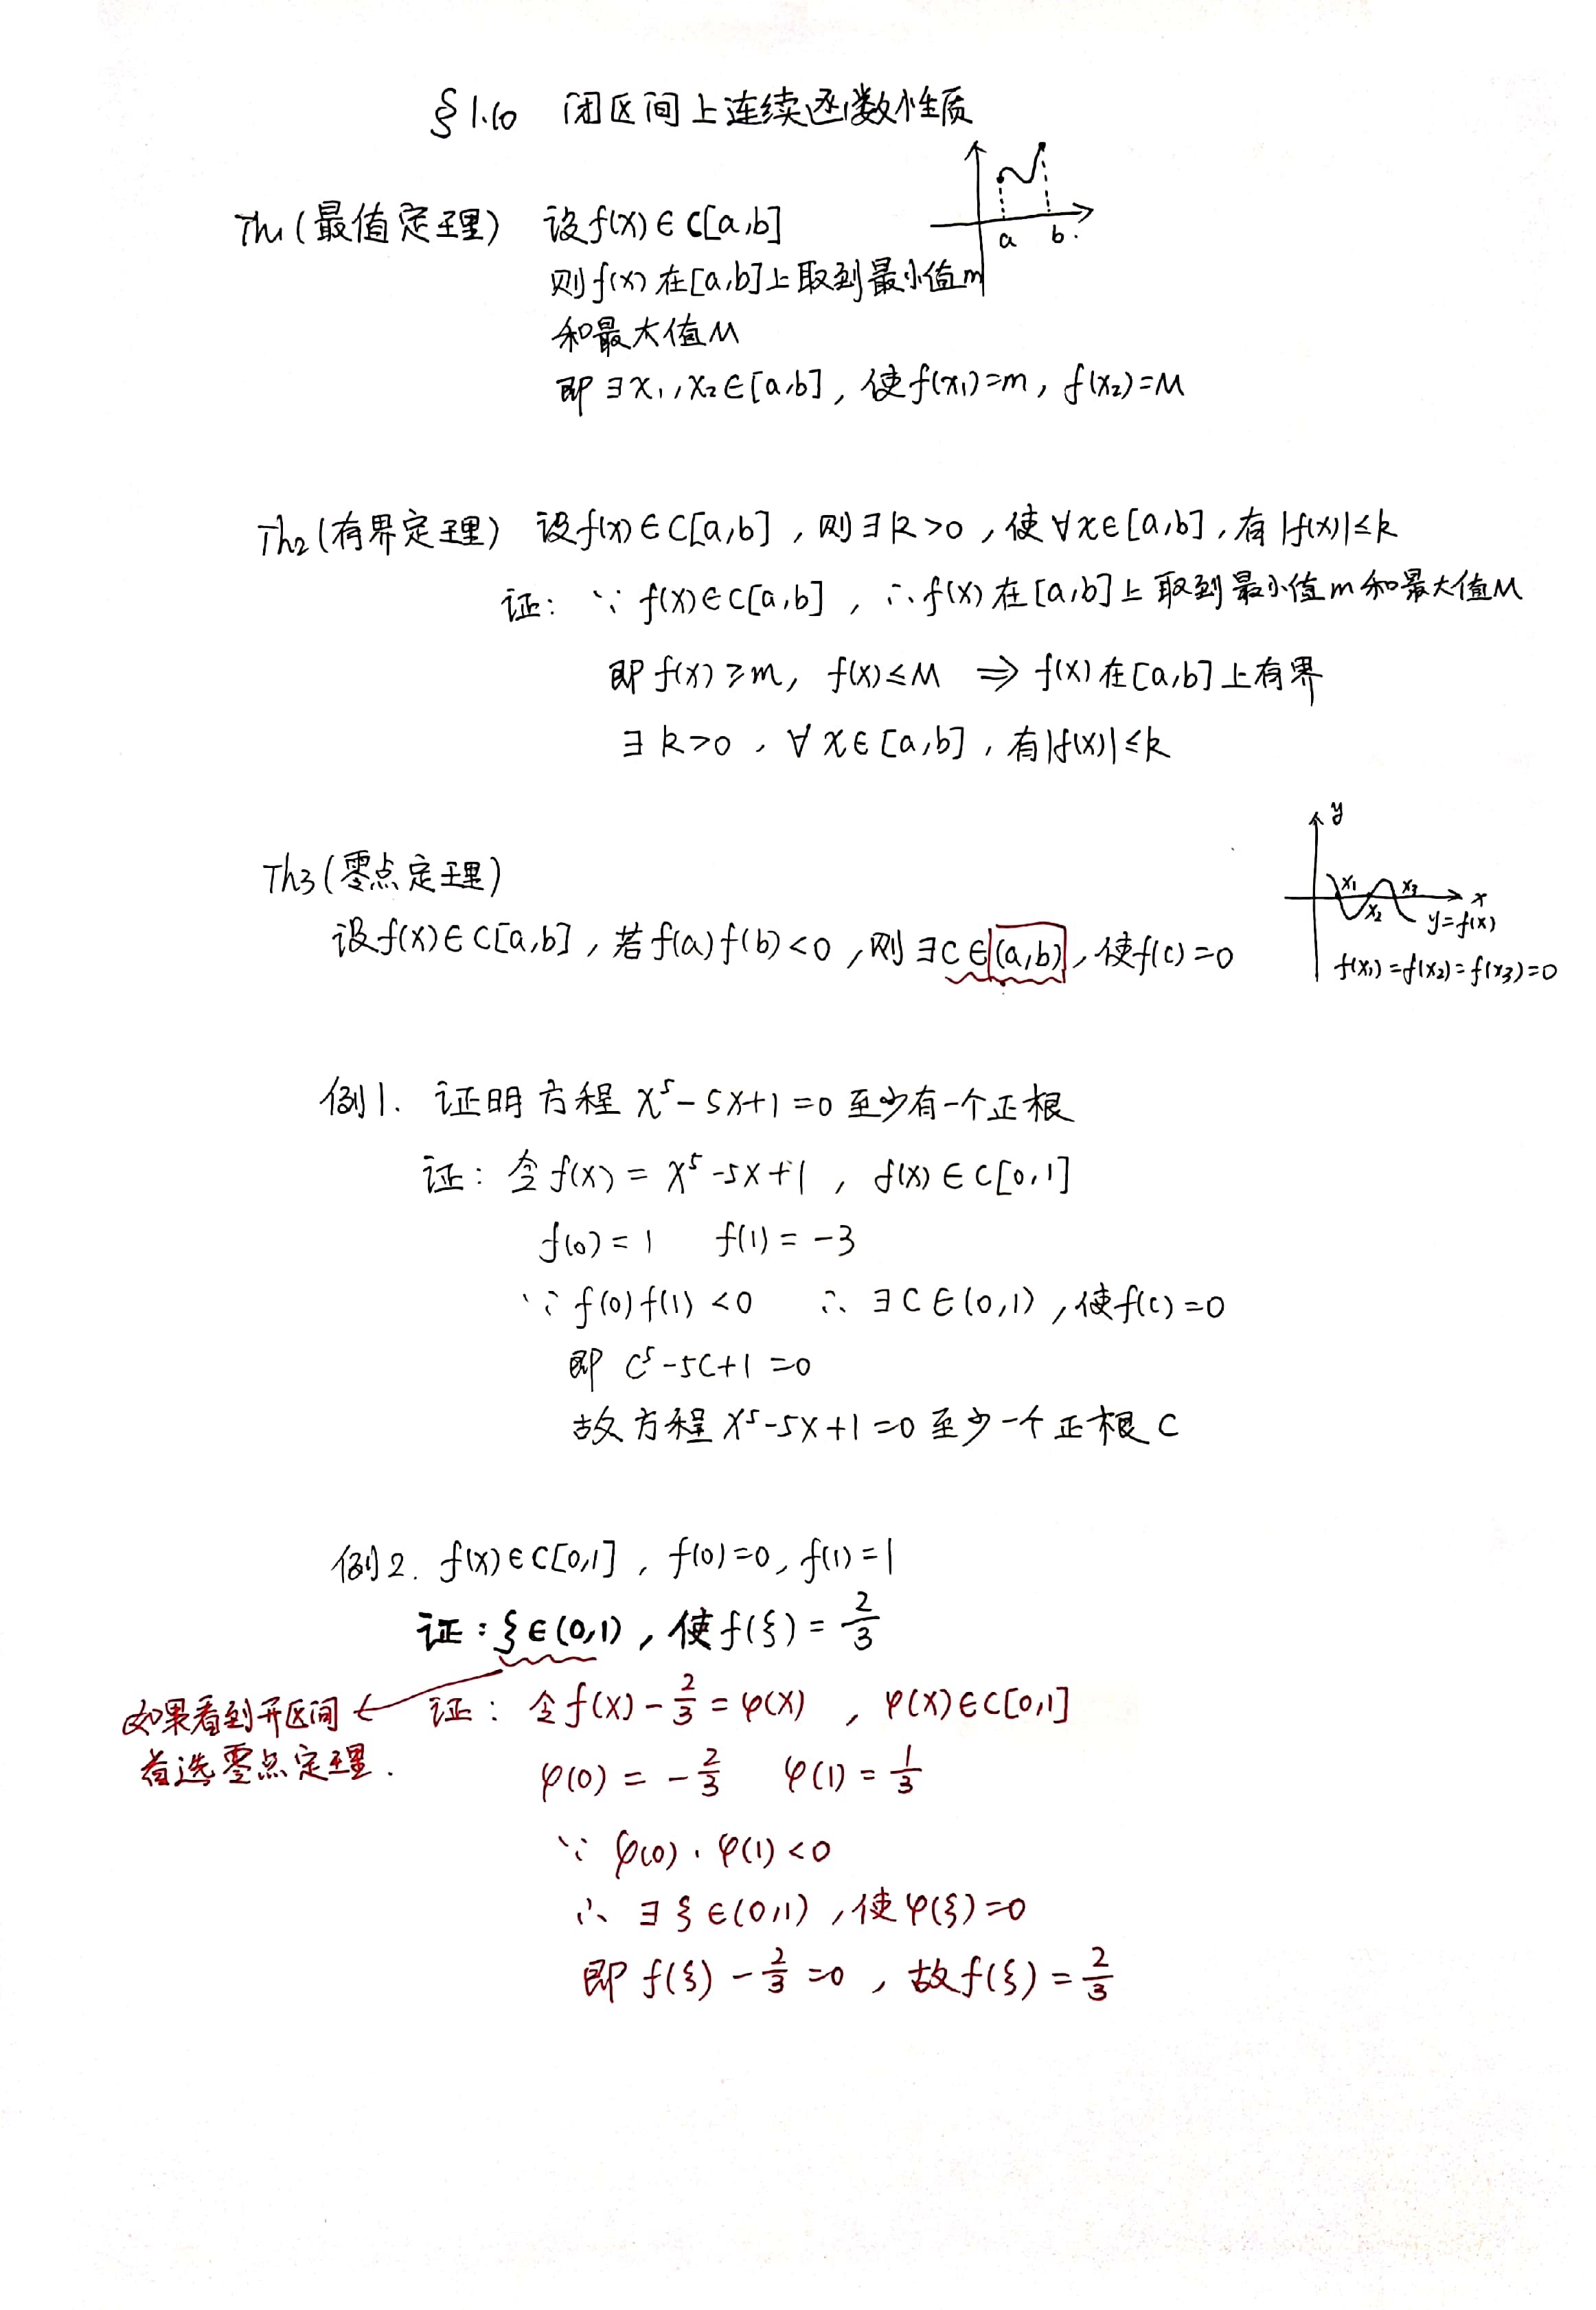 §1.10 闭区间上连续函数性质
Th1(最值定理) 设f(x)∈C[a,b]
a b.
则f(x)在[a,b]上取到最小值m
和最大值M
即∃x₁,x₂∈[a,b],使f(x₁)=m, f(x₂)=M
Th2(有界定理) 设f(x)∈C[a,b],则∃k>0,使∀x∈[a,b],有|f(x)|≤k
证: ∵f(x)∈C[a,b], ∴f(x)在[a,b]上取到最小值m和最大值M
即f(x)≥m, f(x)≤M ⇒ f(x)在[a,b]上有界
∃k>0, ∀x∈[a,b],有|f(x)|≤k
Th3(零点定理)
设f(x)∈C[a,b],若f(a)f(b)<0,则∃C∈(a,b),使f(c)=0
y
x₁ x₂ x₃ x
y=f(x)
f(x₁)=f(x₂)=f(x₃)=0
例1. 证明方程x⁵-5x+1=0至少有一个正根
证: 令f(x)=x⁵-5x+1, f(x)∈C[0,1]
f(0)=1 f(1)=-3
∵f(0)f(1)<0 ∴∃C∈(0,1),使f(c)=0
即 C⁵-5C+1=0
故方程x⁵-5x+1=0至少一个正根C
例2. f(x)∈C[0,1], f(0)=0, f(1)=1
证:ξ∈(0,1),使f(ξ)=2/3
如果看到开区间
首选零点定理.
证: 令f(x)-2/3=φ(x), φ(x)∈C[0,1]
φ(0)=-2/3 φ(1)=1/3
∵φ(0)·φ(1)<0
∴∃ξ∈(0,1),使φ(ξ)=0
即f(ξ)-2/3=0,故f(ξ)=2/3